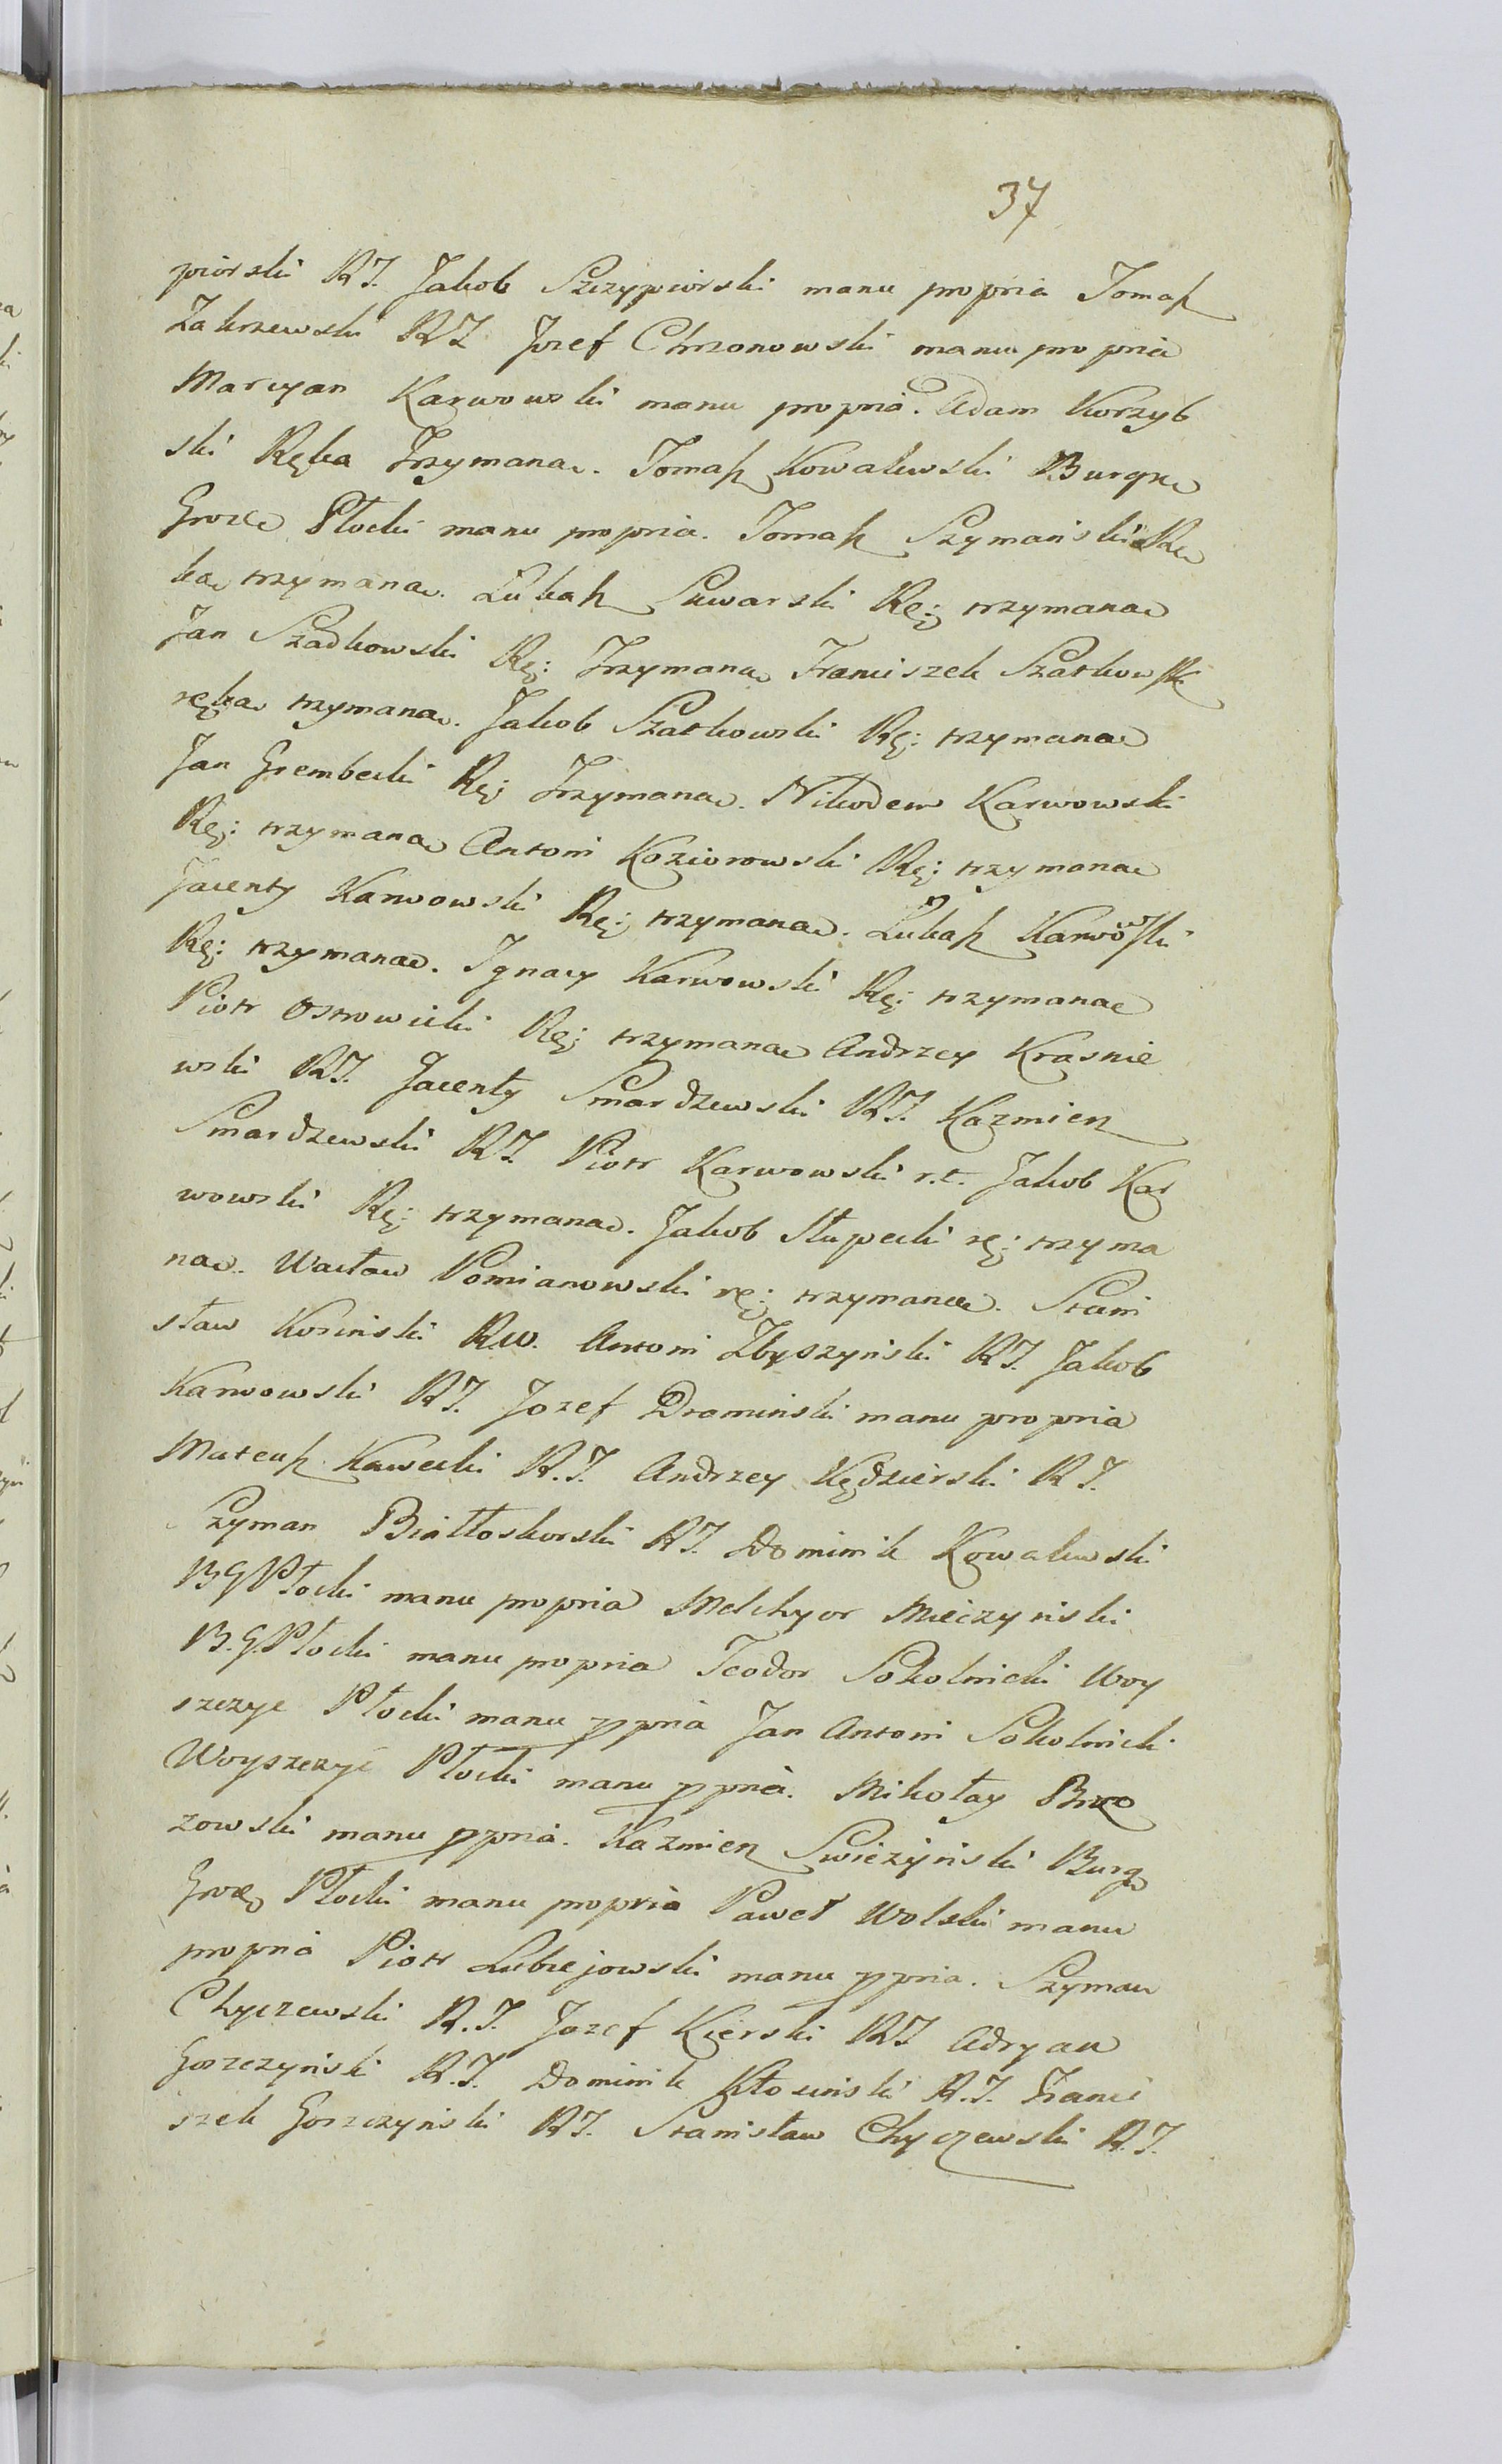 37
piorski RT. Jakob Szczypiorski manu propria Tomasz
Zakrzewski RT Jozef Chrzanowski manu propria
Marcyan Karwowski manu propria. Adam Korzyb
ski Ręka Trzymana. Tomasz Kowalewski Burgra
Grodz Płocki manu propria. Tomasz Szymański Rę
ką trzymaną. Łukasz Suwarski Rę: trzymaną
Jan Szadkowski Rę: Trzymaną Franciszek Szatkowski
ręką trzymaną. Jakob Szatkowski Rę: trzymaną
Jan Grembecki Rę: Trzymaną. Nikodem Karwowski
Rę: trzymaną Antoni Koziorowski Rę: trzymaną
Jacenty Karwowski Rę: trzymaną. Łukasz Karwowski
Rę: trzymaną. Ignacy Karwowski Rę: trzymaną
Piotr Ostrowicki Rę: trzymaną Andrzey Krasnie
wski RT. Jacenty Smardzewski RT. Kazmierz
Smardzewski RT. Piotr Karwowski r.t. Jakob Kar
wowski Rę: trzymaną. Jakob Słupecki rę: trzyma
ną. Wacław Pomianowski rę: trzymaną. Stani
sław Kosinski R.W. Antoni Zbyszyński RT. Jakob
Karwowski RT. Jozef Dramiński manu propria
Mateusz Kawecki R.T. Andrzey Kędzierski RT.
Szyman Białłoskorski RT. Dominik Kowalewski
BGPłocki manu propria Melchyor Mieczyński
B.G.Płocki manu propria Teodor Sokolnicki Woy
szczyc Płocki manu ppria Jan Antoni Sokolnicki
Woyszczyc Płocki manu ppria. Mikołay Brzo
zowski manu ppria. Kazmierz Swieżyński Burg
Grodz Płocki manu propria Paweł Wolski manu
propria Piotr Lubiejowski manu ppria. Szyman
Chyczewski R.T. Jozef Kierski RT Adryan
Gorzczyński R.T. Dominik Kłosiński R.T. Franci
szek Gorzczyński RT. Stanisław Chyczewski R.T.